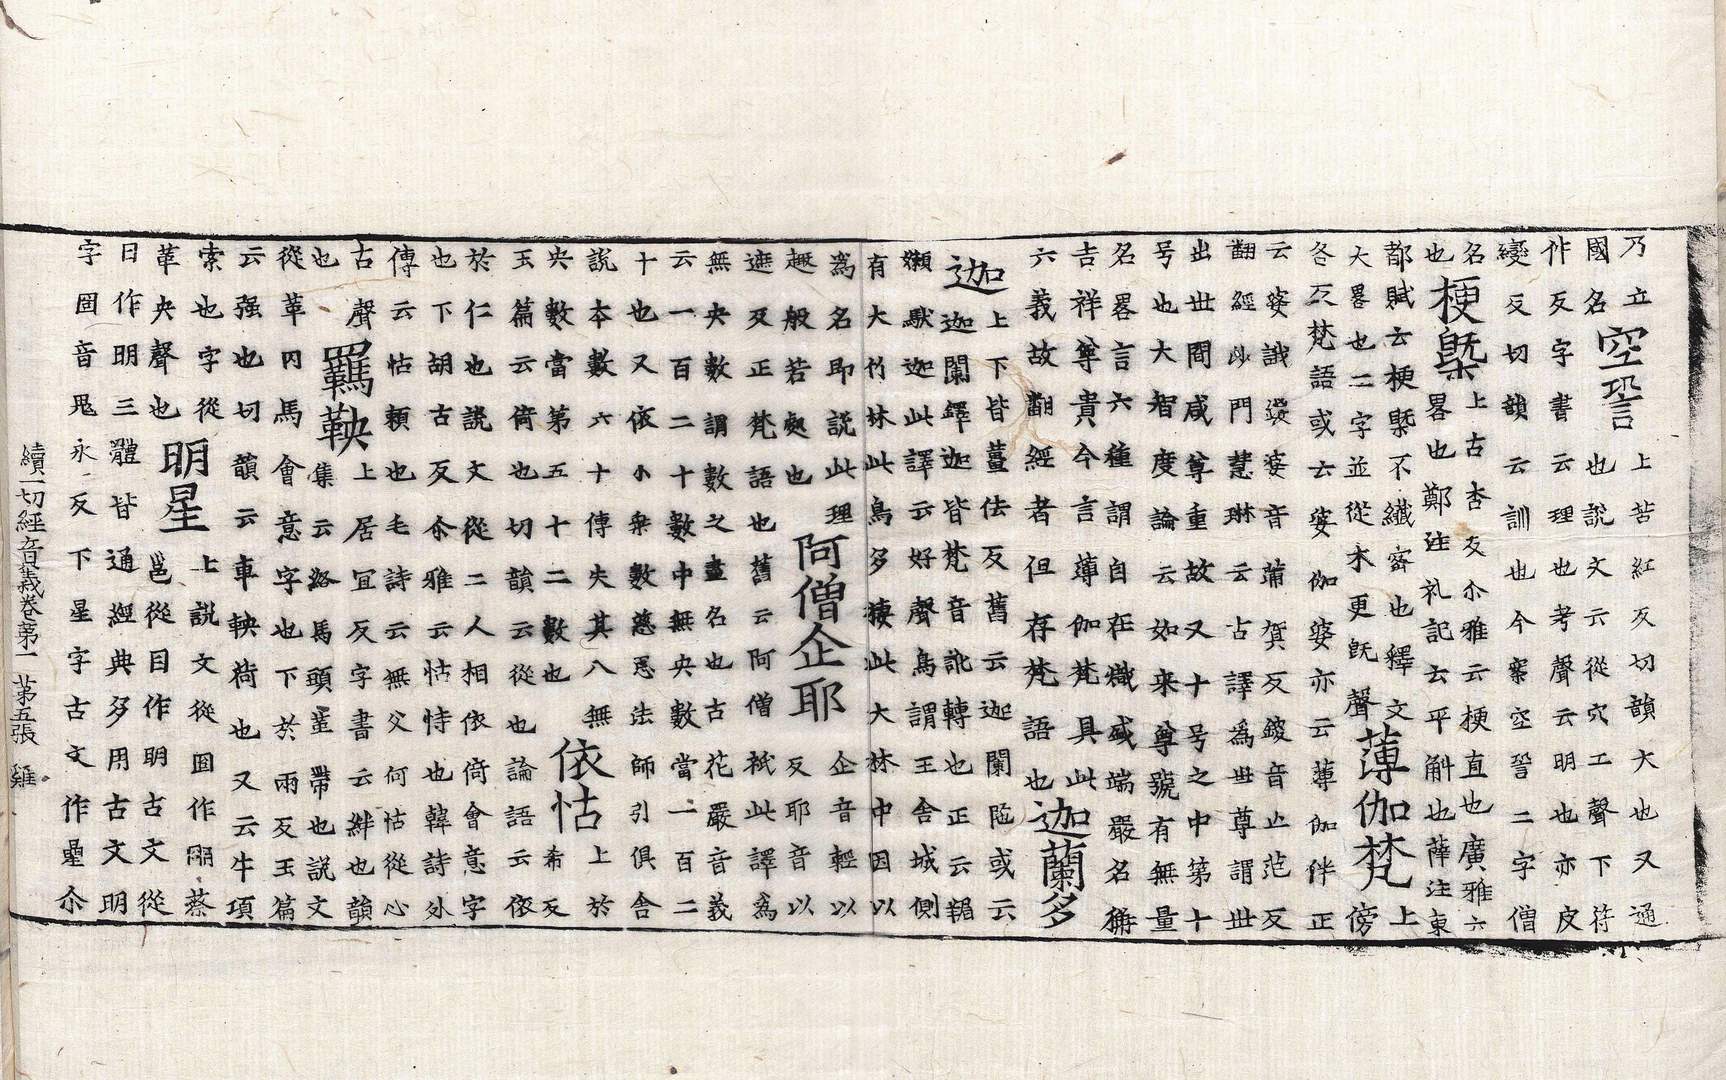 乃立國名
空䛒
上苦紅反切韻大也又通
也說文云從穴工聲下符
作反字書云理也考聲云明也亦皮
變反切韻云訓也今案空䛒二字僧
名也
梗槩
上古杏反尒雅云梗直也廣雅六
畧也鄭注礼記云平斛也薛注東
都賦云梗槩不纖密也釋文
大畧也二字並從木更旣聲
薄伽梵
上傍
各反梵語或云婆伽婆亦云薄伽伴正
云婆誐鑁婆音蒲賀反鑁音亡范反
翻經沙門慧琳云古譯為世尊謂世
出世間咸尊重故又十号之中第十
号也大智度論云如來尊號有無量
名畧言六種謂自在熾盛端嚴名稱
吉祥尊貴今言薄伽梵具此
六義故翻經者但存梵語也
迦蘭多
迦
上下皆薑佉反舊云迦闌陁或云
迦闌鐸迦皆梵音訛轉也正云羯
嬾馱迦此譯云好聲鳥謂王舍城側
有大竹林此鳥多棲此大林中因以
爲名即說此理
趣般若處也
阿僧企耶
企音輕以
反耶音以
遮反正梵語也舊云阿僧祇此譯爲
無央數謂數之盡名也古花嚴音義
云一百二十數中無央數當一百二
十也又依小乗數慈恩法師引俱舍
說本數六十傳失其八無
央數當第五十二數也
依怙
上於
希反
玉篇云倚也切韻云從也論語云依
於仁也說文從二人相依倚會意字
也下胡古反尒雅云怙恃也韓詩外
傳云怙賴也毛詩云無父何怙從心
古聲
也
羈鞅
上居宜反字書云絆也韻
集云絡馬頭革帶也說文
從革冈馬會意字也下於兩反玉篇
云强也切韻云車鞅荷也又云牛項
索也字從
革央聲也
明星
上說文從囧作朙蔡
邕從目作明古文從
日作明三體皆通經典多用古文明
字囧音鬼永反下星字古文作曐尒
續一切經音義卷第一 第五張 雞